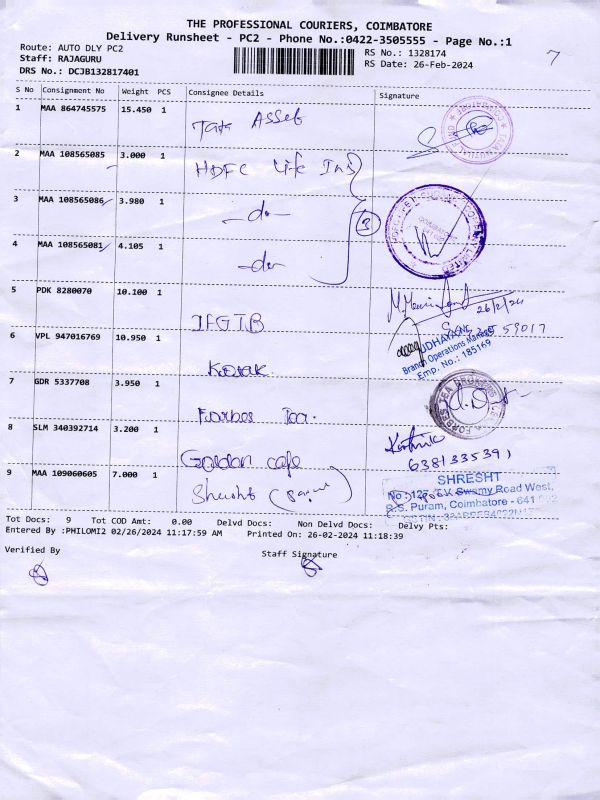 THE PROFESSIONAL COURIERS, COIMBATORE
Delivery Runsheet - PC2 - Phone No.:0422-3505555 - Page No.:1
Route: AUTO DLY PC2
Staff: RAJAGURU
DRS No.: DCJB132817401
RS No.: 1328174
RS Date: 26-Feb-2024
7
S No Consignment No Weight PCS Consignee Details Signature
1 MAA 864745575 15.450 1 Tata Asset
2 MAA 108565085 3.000 1 HDFC Life Ins
3 MAA 108565086 3.980 1 -do-
3
4 MAA 108565081 4.105 1 -do-
5 PDK 8280070 10.100 1 IFGTB
26/2/24
59017
6 VPL 947016769 10.950 1 Kotak
UDHAYA
Branch Operations Manager
Emp. No.: 185169
7 GDR 5337708 3.950 1 Forbes Tea.
8 SLM 340392714 3.200 1 Golden cafe
Karthik
6381335391
9 MAA 109060605 7.000 1 Shresht
SHRESHT
No: 127, T.K Swamy Road West,
R.S. Puram, Coimbatore - 641 002
Tot Docs: 9 Tot COD Amt: 0.00 Delvd Docs: Non Delvd Docs: Delvy Pts:
Entered By :PHILOMI2 02/26/2024 11:17:59 AM Printed On: 26-02-2024 11:18:39
Verified By Staff Signature